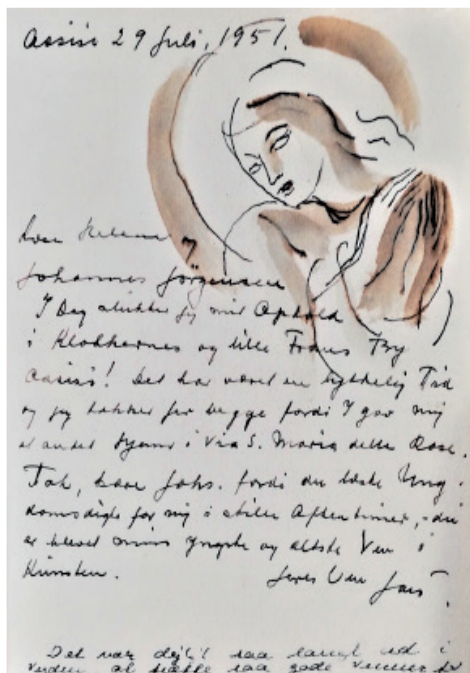 Assisi 29 Juli, 1951.
Kære Helena og
Johannes Jörgensen
I Dag slutter jeg mit Ophold
i Klokkernes og lille Frans By
Assisi! Det har været en lykkelig Tid
og jeg takker for begge fordi I gav mig
et andet Hjem i Via S. Maria delle Rose.
Tak, kære Johs. fordi du læste Ung-
domsdigte for mig i stille Aftentimer, du
er blevet min yngste og ældste Ven i
Kunsten.
Jeres Ven
Det var dejligt saa langt ud i
verden at træffe saa gode venner